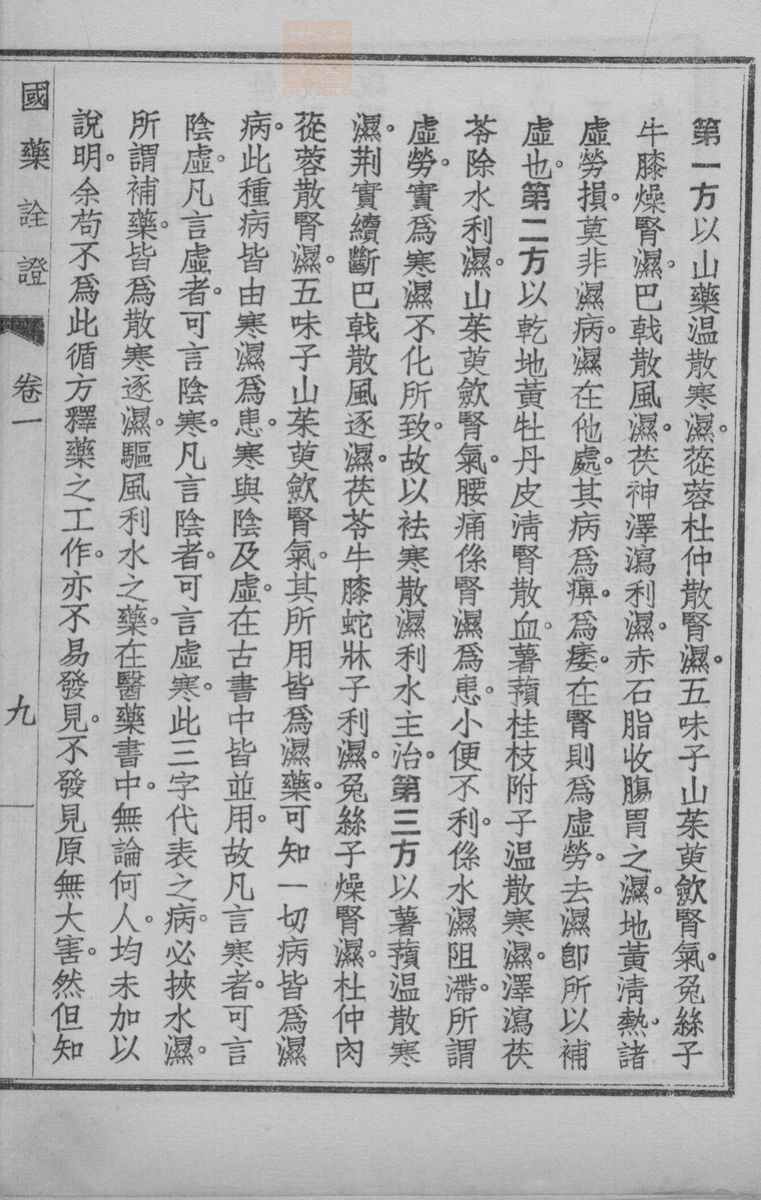 第一方以山藥溫散寒濕。蓯蓉杜仲散腎濕。五味子山茱萸歛腎氣。兔絲子
牛膝燥腎濕。巴戟散風濕。茯神澤瀉利濕。赤石脂收腸胃之濕。地黃清熱。諸
虛勞損。莫非濕病。濕在他處。其病爲痹。爲痿。在腎則爲虛勞。去濕卽所以補
虛也。第二方以乾地黃牡丹皮淸腎散血。薯蕷桂枝附子溫散寒濕。澤瀉茯
苓除水利濕。山茱萸歛腎氣。腰痛係腎濕爲患。小便不利。係水濕阻滯。所謂
虛勞。實爲寒濕不化所致。故以袪寒散濕利水主治。第三方以薯蕷溫散寒
濕。荆實續斷巴戟散風逐濕。茯苓牛膝蛇牀子利濕。兔絲子燥腎濕。杜仲肉
蓯蓉散腎濕。五味子山茱萸歛腎氣。其所用皆爲濕藥。可知一切病皆爲濕
病。此種病皆由寒濕爲患。寒與陰及虛。在古書中皆並用。故凡言寒者。可言
陰虛。凡言虛者。可言陰寒。凡言陰者。可言虛寒。此三字代表之病。必挾水濕。
所謂補藥。皆爲散寒逐濕。驅風利水之藥。在醫藥書中。無論何人。均未加以
說明。余苟不爲此循方釋藥之工作。亦不易發見。不發見原無大害。然但知
國藥詮證
卷一
九